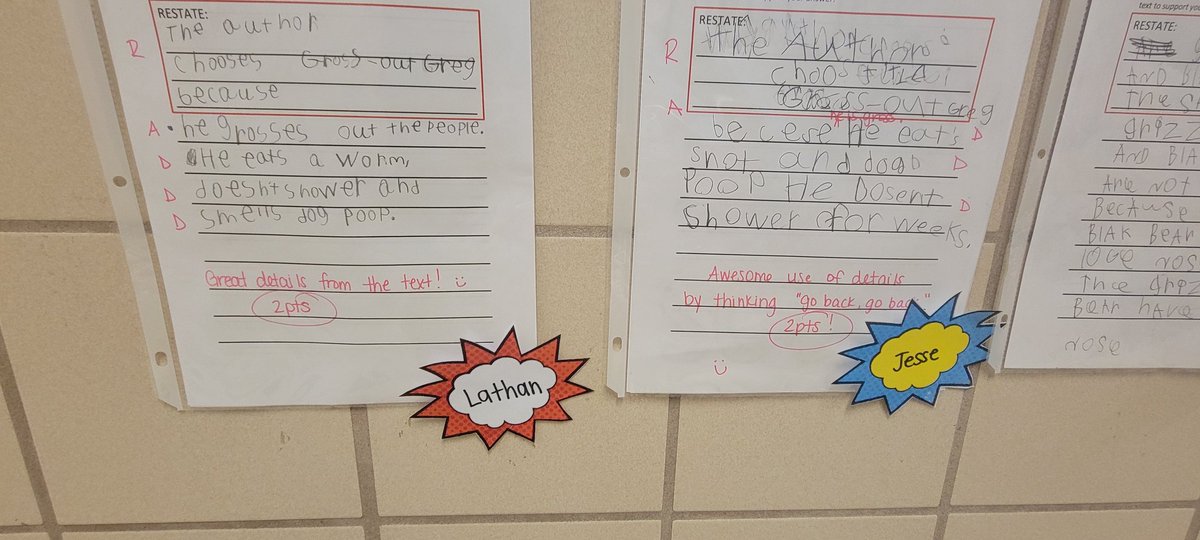 RESTATE:
The author
R
chooses Gross-out Greg
because
A • he grosses out the people.
D He eats a worm,
D doesn't shower and
D smells dog poop.
Great details from the text! :)
2pts
Lathan
RESTATE:
The Author
R
choos title
A Gross-out Greg
he is gross.
becese He eats D
snot and dog D
Poop He Dosent
shower for weeks. D
Awesome use of details
by thinking "go back, go back"
2pts!
:)
Jesse
text to support you
RESTATE:
AND Bl
the s
grizz
And BlA
Are not
Because
BlAk BeAr
love nos
BeAr hAve
nose